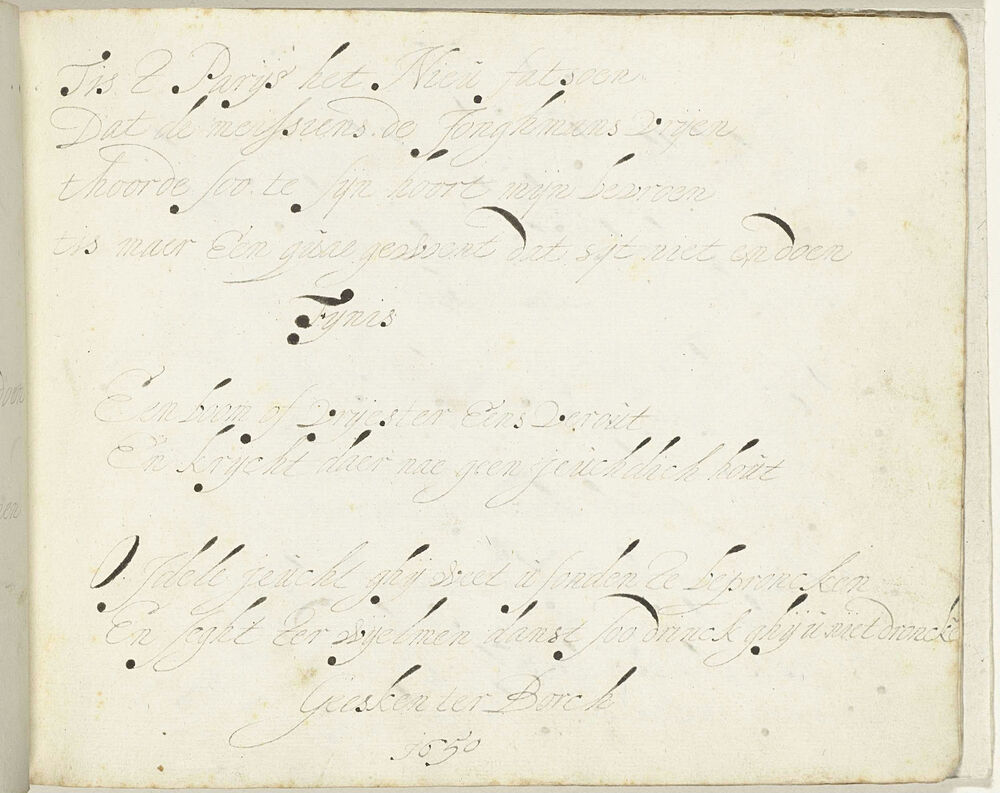 Tis t Parijs het Nieu fatsoen
Dat de meijssiens de Jonghmans vrijen
thoorde soo te sijn hoort mijn bevroen
tis maer Een quae gewent dat sijt niet en doen
Fynis
Een boom of vrijester Eens verout
En krycht daer nae geen jeuchdich hout
O Jdele jeucht ghij weet u sonden te beproncken
En seght ter wijelmen danst soo drinck ghij u niet droncken
Geesken ter Borch
1650